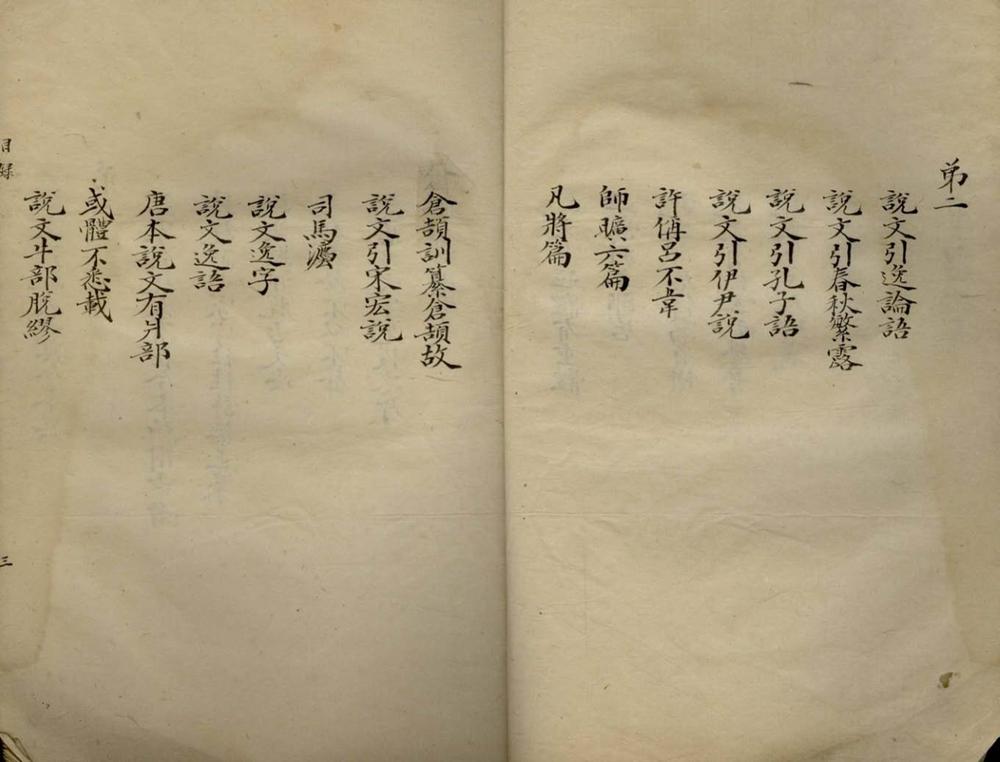 弟二
說文引逸論語
說文引春秋繁露
說文引孔子語
說文引伊尹說
許偁呂不韋
師曠六篇
凡將篇
倉頡訓纂倉頡故
說文引宋宏說
司馬法
說文逸字
說文逸語
唐本說文有部
或體不悉載
說文部脫繆
目錄
三